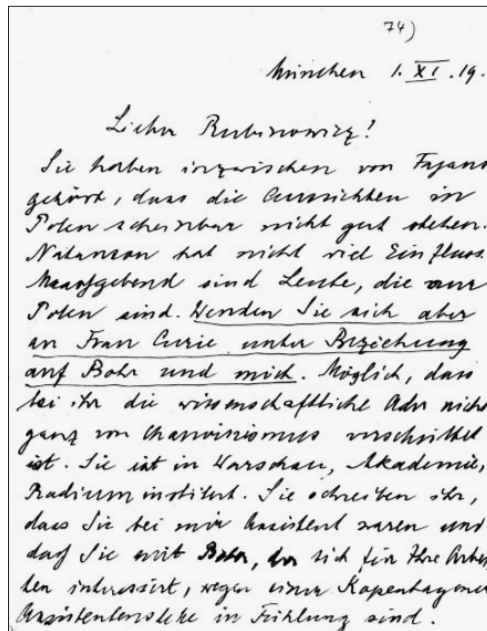 74)
München 1. XI. 19.
Lieber Rubinowicz!
Sie haben inzwischen von Fajans
gehört, dass die Aussichten in
Polen scheinbar nicht gut stehen.
Natanson hat nicht viel Einfluss.
Maassgebend sind Leute, die nur
Polen sind. Wenden Sie sich aber
an Frau Curie unter Beziehung
auf Bohr und mich. Möglich, dass
bei ihr die wissenschaftliche Ader nicht
ganz von Chauvinismus verschüttet
ist. Sie ist in Warschau, Akademie,
Radiuminstitut. Sie schreiben ihr,
dass Sie bei mir Assistent waren und
dass Sie mit Bohr, der sich für Ihre Arbei-
ten interessirt, wegen einer Kopenhagener
Assistentenstelle in Fühlung sind.